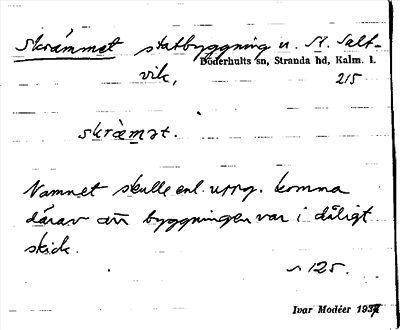 Skrämmet statbyggning u. St. Salt-
Döderhults sn, Stranda hd, Kalm. l.
vik, 215
skràmət.
Namnet skulle enl. uppg. komma
därav att byggningen var i dåligt
skick.
~ 125.
Ivar Modéer 1937